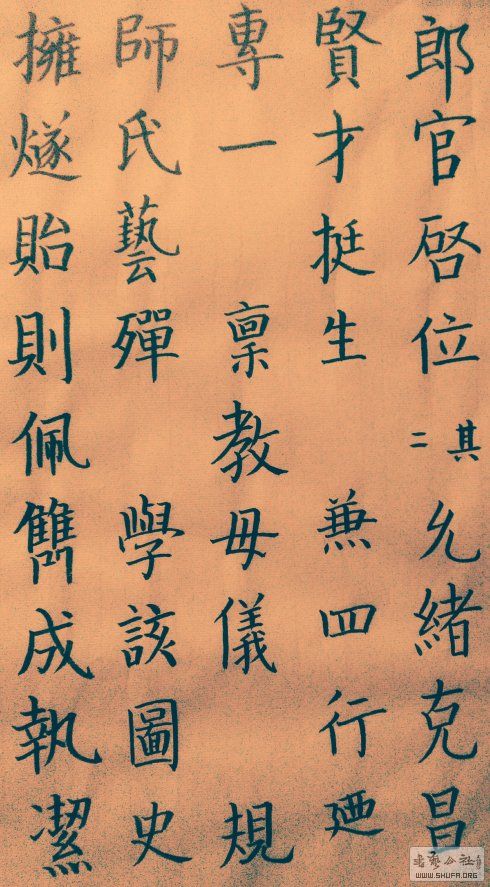 郎官啓位其二允緒克昌
賢才挺生兼四行廼
專一禀教母儀規
師氏藝殫學該圖史
擁燧貽則佩成執潔
书艺公社
WWW.SHUFA.ORG